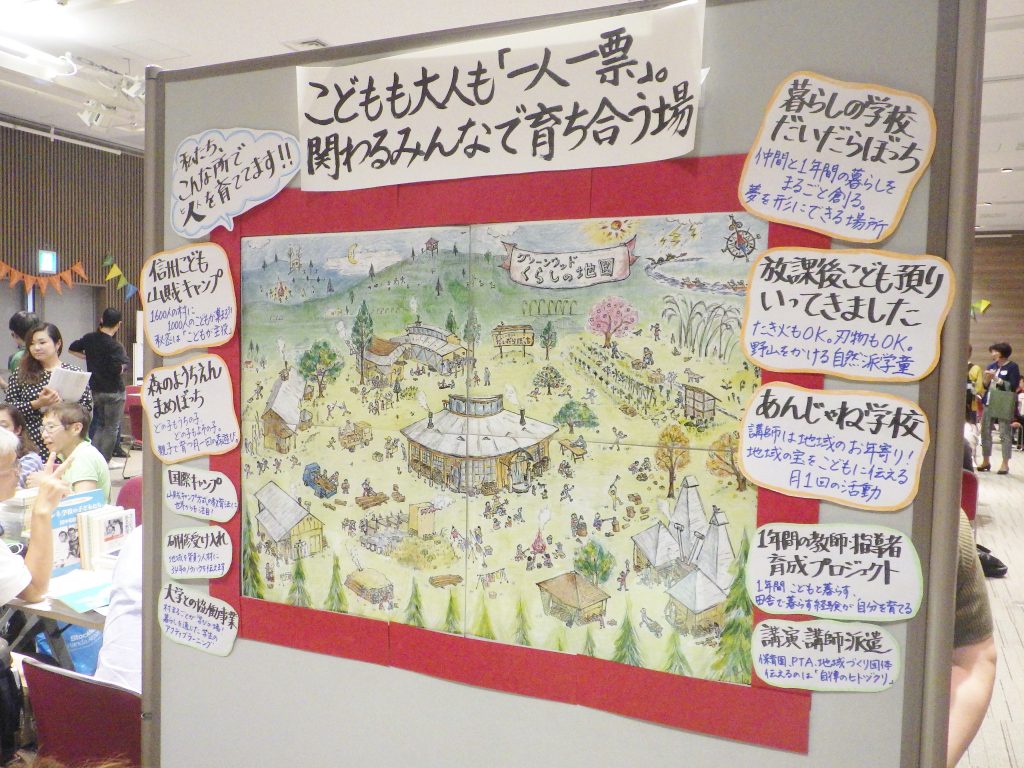 こどもも大人も「一人一票」。
関わるみんなで育ち合う場
私たち、
こんな所で
人を育ててます!!
信州こども
山賊キャンプ
1600人の村に
1000人のこどもが集まる!!
森のようちえん
まめぼっち
どの子もうちの子
どの子もよその子。
親子で育つ月一回の
国際キャンプ
研修受け入れ
地域を担う人材に
大学との協働事業
村まるごとが学びの場
暮らしを通じた学生の
アクティブラーニング
グリーンウッド
くらしの地図
暮らしの学校
だいだらぼっち
仲間と1年間の暮らしを
まるごと創る。
夢を形にできる場所
放課後こども預り
いってきました
たき火もOK。刃物もOK。
野山をかける自然派学童
あんじゃね学校
講師は地域のお年寄り!
地域の宝をこどもに伝える
月1回の活動
1年間の教師・指導者
育成プロジェクト
1年間こどもと暮らす、
田舎で暮らす経験が自分を育てる
講演・講師派遣
保育園、PTA、地域づくり団体
伝えるのは「自律のヒトヅクリ」